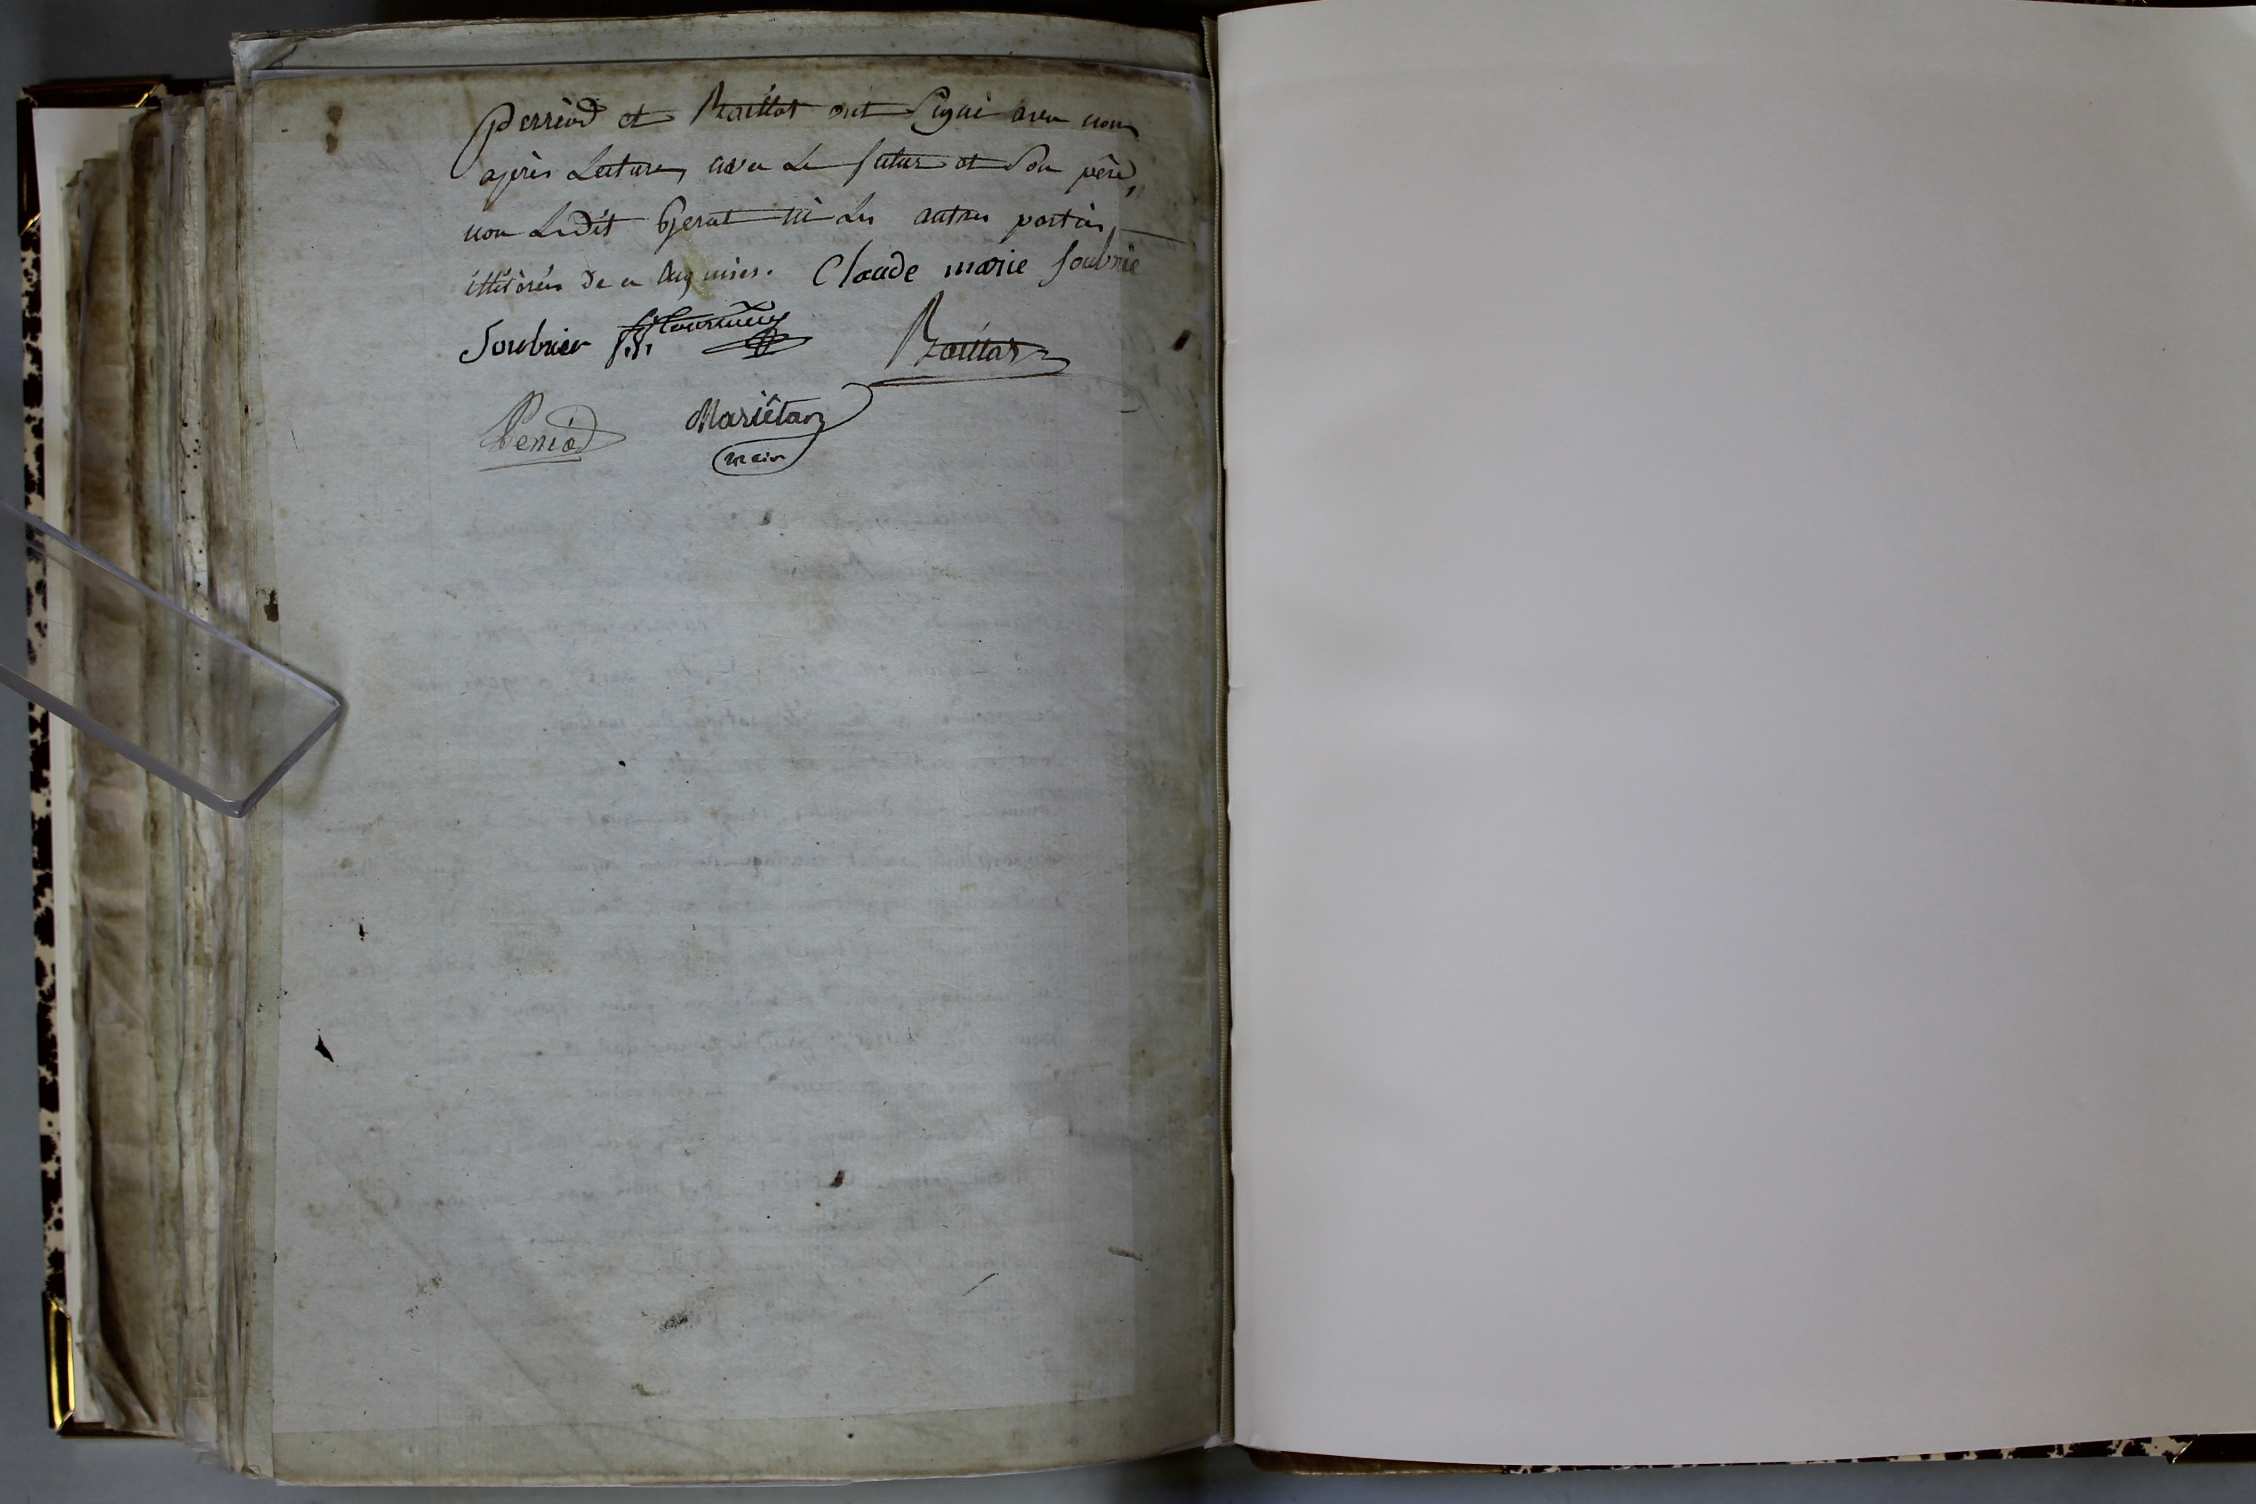 Perriod et Raillot ont Signé avec nous
après Lecture, avec Le futur et Son père,
non Ledit Gerat ni Les autres parties,
illiterés de ce enquises. Claude marie Soubrié
Soubrier
Raillot
Perriod Mariétan
maire